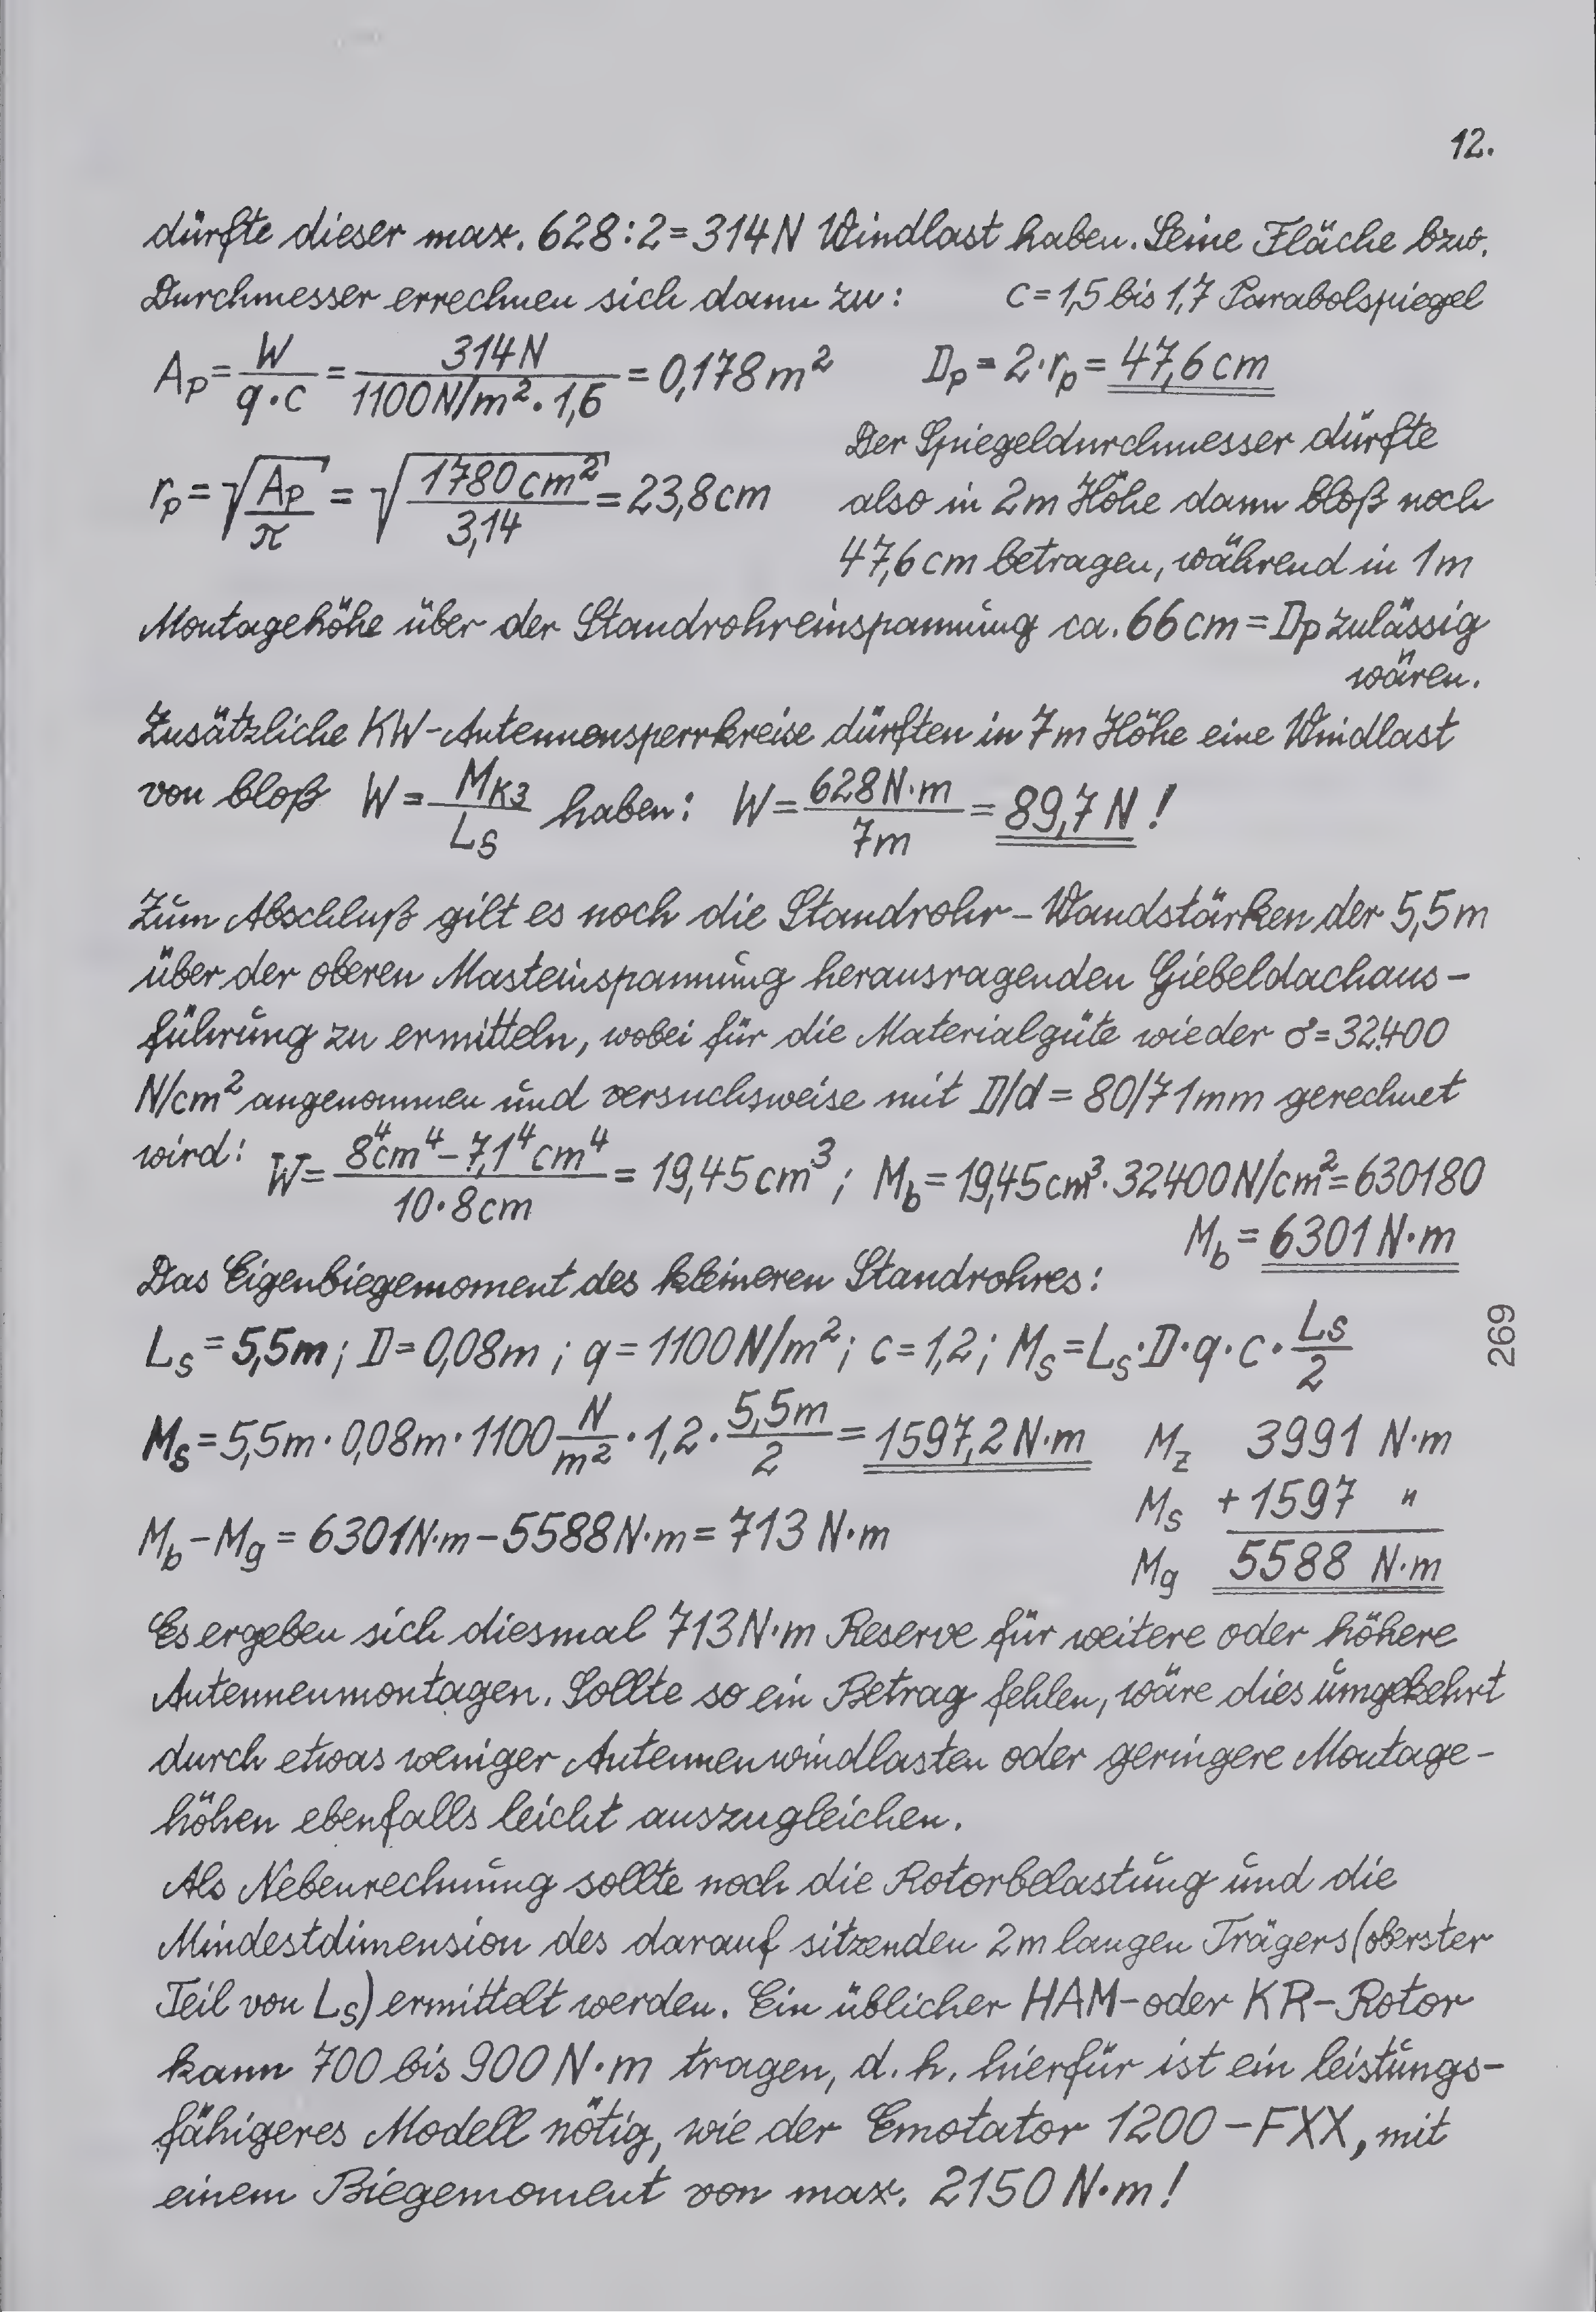 12.
dürfte dieser max. 628:2=314N Windlast haben. Seine Fläche bzw.
Durchmesser errechnen sich dann zu: c=1,5 bis 1,7 Parabolspiegel
Ap = W / q·c = 314N / 1100N/m²·1,6 = 0,178m² Dp = 2·rp = 47,6cm
Der Spiegeldurchmesser dürfte
rp = √Ap/π = √1780cm²/3,14 = 23,8cm also in 2m Höhe dann bloß noch
47,6cm betragen, während in 1m
Montagehöhe über der Standrohreinspannung ca. 66cm = Dp zulässig
wären.
Zusätzliche KW-Antennensperrkreise dürften in 7m Höhe eine Windlast
von bloß W = MK3 / LS haben: W = 628N·m / 7m = 89,7N!
Zum Abschluß gilt es noch die Standrohr-Wandstärken der 5,5m
über der oberen Masteinspannung herausragenden Giebeldachaus-
führung zu ermitteln, wobei für die Materialgüte wieder σ=32400
N/cm² angenommen und versuchsweise mit D/d = 80/71mm gerechnet
wird: W = 8⁴cm⁴-7,1⁴cm⁴ / 10·8cm = 19,45cm³; Mb = 19,45cm³·32400N/cm²=630180
Mb = 6301N·m
Das Eigenbiegemoment des kleineren Standrohres:
LS = 5,5m; D=0,08m; q=1100N/m²; c=1,2; MS=LS·D·q·c·LS/2
MS=5,5m·0,08m·1100 N/m²·1,2·5,5m/2 = 1597,2N·m Mz 3991 N·m
MS +1597 "
Mb-Mg = 6301N·m-5588N·m=713 N·m
Mg 5588 N·m
Es ergeben sich diesmal 713N·m Reserve für weitere oder höhere
Antennenmontagen. Sollte so ein Betrag fehlen, wäre dies umgekehrt
durch etwas weniger Antennenwindlasten oder geringere Montage-
höhen ebenfalls leicht auszugleichen.
Als Nebenrechnung sollte noch die Rotorbelastung und die
Mindestdimension des darauf sitzenden 2m langen Trägers (oberster
Teil von LS) ermittelt werden. Ein üblicher HAM- oder KR-Rotor
kann 700 bis 900 N·m tragen, d.h. hierfür ist ein leistungs-
fähigeres Modell nötig, wie der Emotator 1200-FXX, mit
einem Biegemoment von max. 2150 N·m!
269